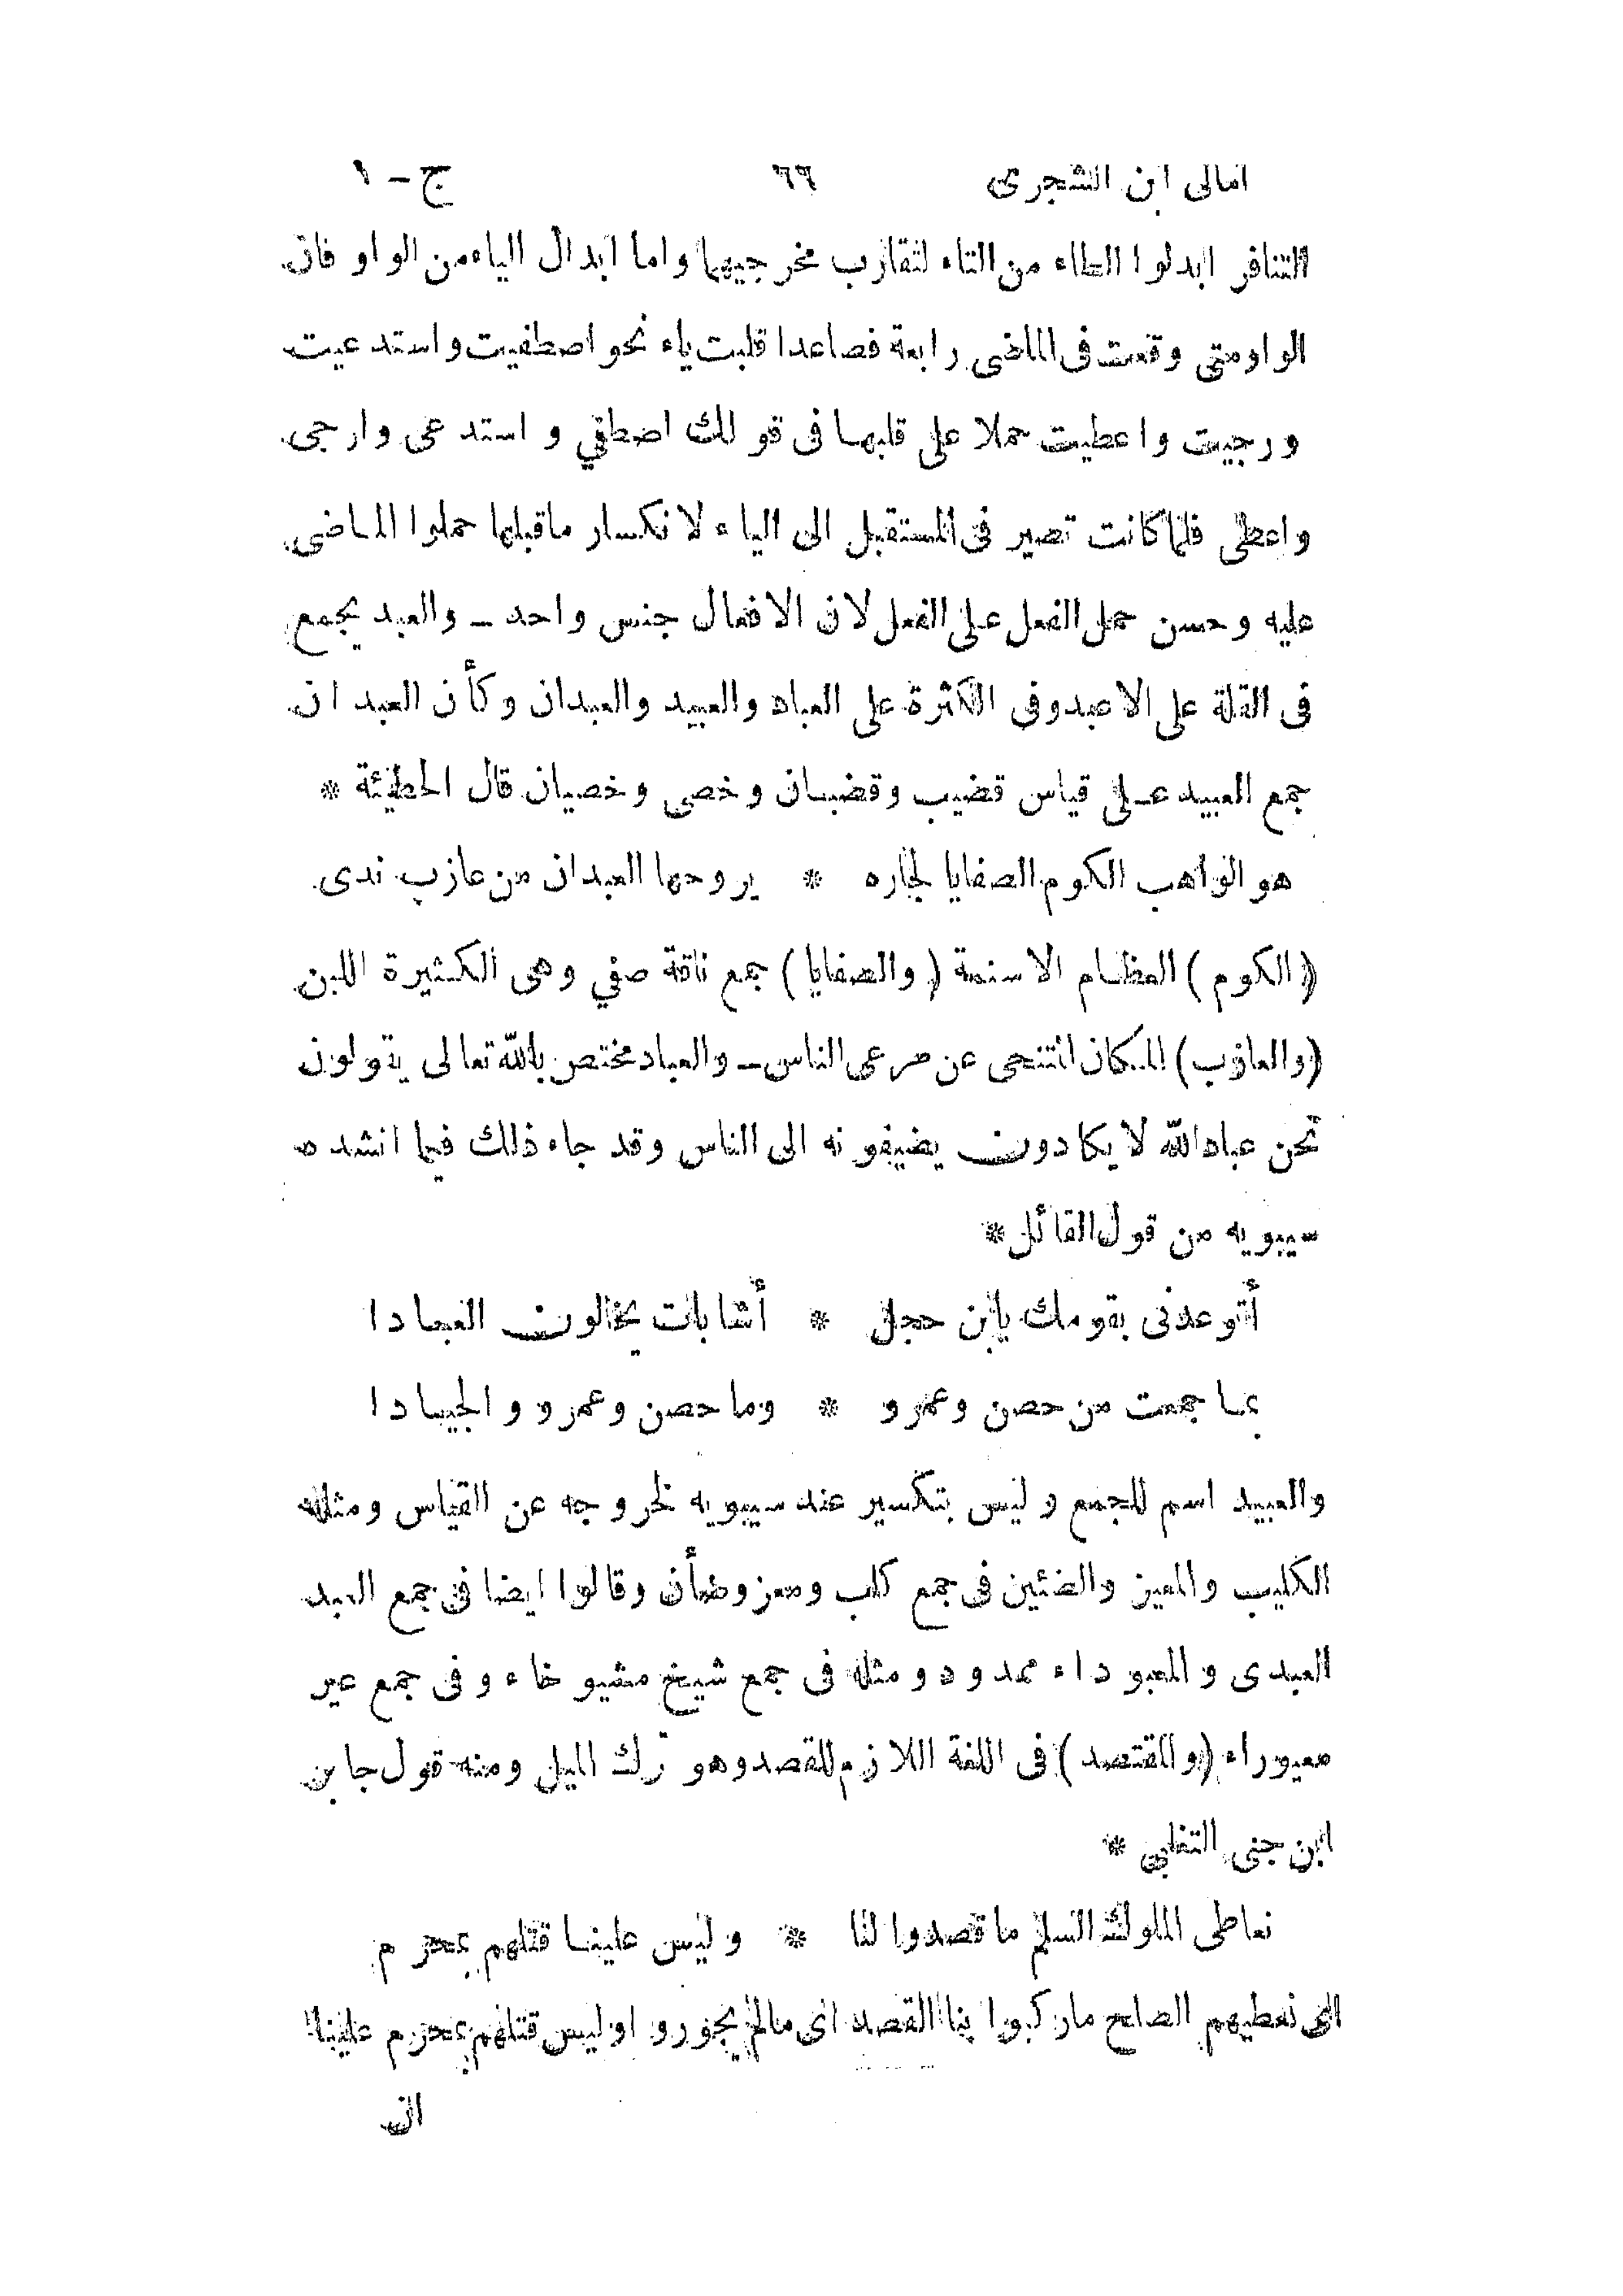 امالى ابن الشجرى ٦٦ ج - ١
التنافر ابدلوا الطاء من التاء لتقارب مخرجيهما واما ابدال الياء من الواو فان
الواو متى وقعت فى الماضى رابعة فصاعدا قلبت ياء نحو اصطفيت واستدعيت
ورجيت واعطيت حملا على قلبها فى قولك اصطفي واستدعى وارجى
واعطى فلما كانت تصير فى المستقبل الى الياء لانكسار ماقبلها حملوا الماضى
عليه وحسن حمل الفعل على الفعل لان الافعال جنس واحد _ والعبد يجمع
فى القلة على الاعبد وفى الكثرة على العباد والعبيد والعبدان وكأن العبدان
جمع العبيد على قياس قضيب وقضبان وخصى وخصيان قال الحطيئة *
هو الواهب الكوم الصفايا لجاره * يروحها العبدان من عازب ندى
(الكوم) العظام الاسنمة (والصفايا) جمع ناقة صفي وهى الكثيرة اللبن
(والعازب) المكان المتنحى عن مرعى الناس _ والعباد مختص بالله تعالى يقولون
نحن عباد الله لا يكادون يضيفونه الى الناس وقد جاء ذلك فيما انشده
سيبويه من قول القائل *
أتوعدنى بقومك يابن حجل * أشابات يخالون العبادا
بما جمعت من حصن وعمرو * وما حصن وعمرو والجيادا
والعبيد اسم للجمع وليس بتكسير عند سيبويه لخروجه عن القياس ومثله
الكليب والمعيز والضئين فى جمع كلب ومعز وضأن وقالوا ايضا فى جمع العبد
العبدى والمعبوداء ممدود ومثله فى جمع شيخ مشيوخاء وفى جمع عير
معيوراء (والمقتصد) فى اللغة اللازم للقصد وهو ترك الميل ومنه قول جابر
ابن جنى التغلبي *
نعاطى الملوك السلم ما قصدوا لنا * وليس علينا قتلهم بمحرم
اى نعطيهم الصلح ماركبوا بنا القصد اى مالم يجوروا وليس قتلهم بمحرم علينا
ان